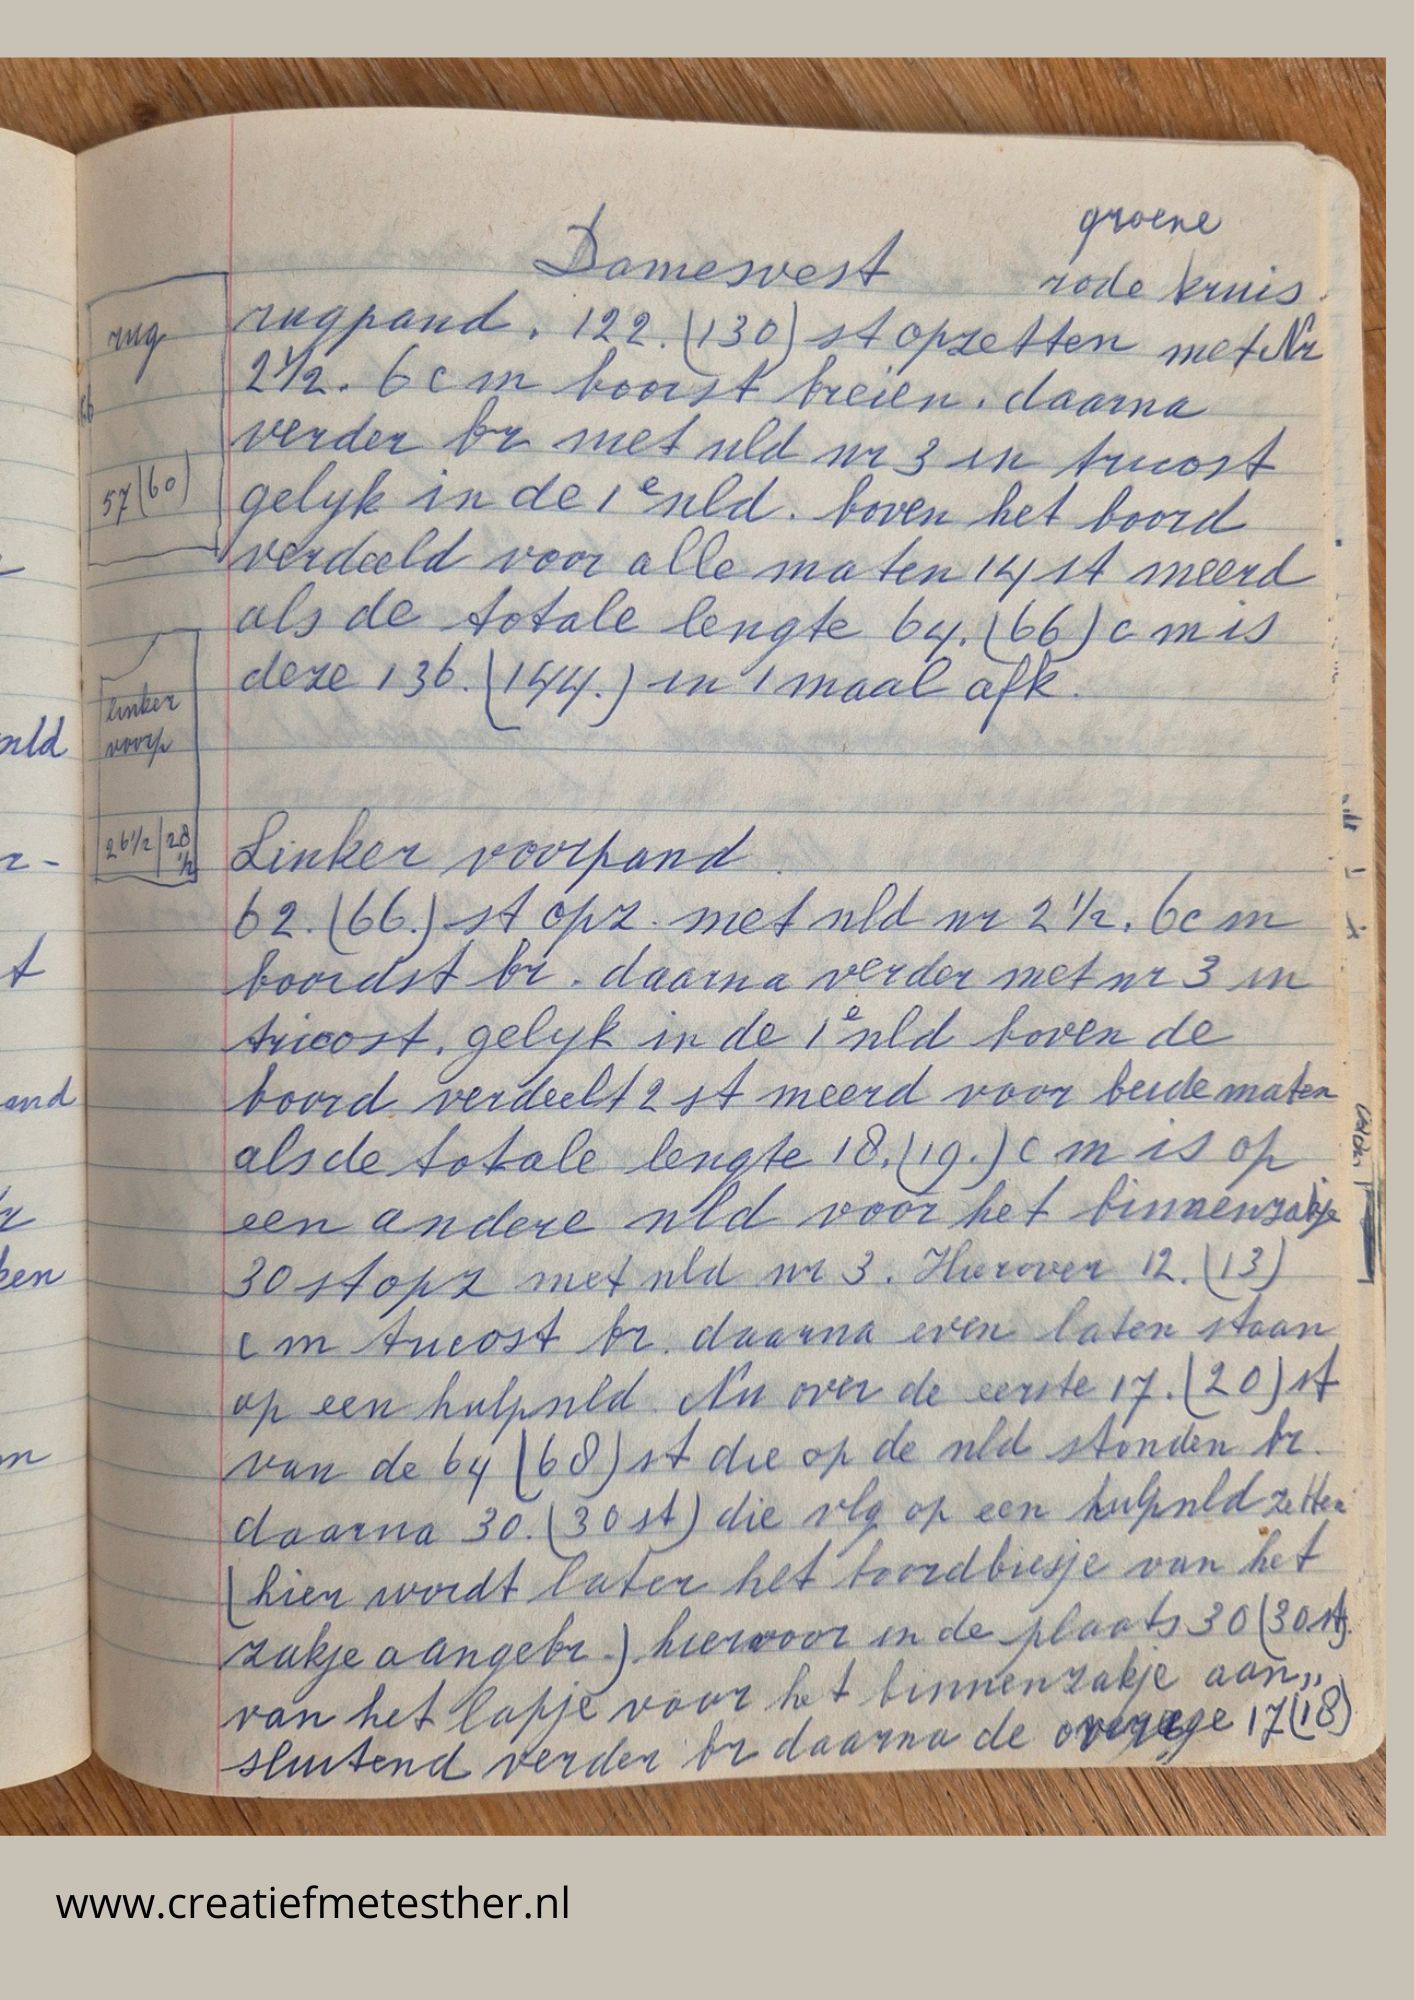 groene
Damesvest rode kruis.
rugpand. 122. (130) st opzetten met Nr
2 1/2. 6 cm boorst breien. daarna
verder br met nld nr 3 in tricost
gelyk in de 1e nld. boven het boord
verdeeld voor alle maten 14 st meerd
als de totale lengte 64. (66) cm is
deze 136. (144.) in 1 maal afk.
rug
57 (60)
linker
voorp
26 1/2 | 28 1/2
Linker voorpand.
62. (66.) st opz. met nld nr 2 1/2. 6 cm
boordst br. daarna verder met nr 3 in
tricost. gelyk in de 1e nld boven de
boord verdeelt 2 st meerd voor beide maten
als de totale lengte 18. (19.) cm is op
een andere nld voor het binnenzakje
30 st opz met nld nr 3. Hierover 12. (13)
cm tricost br. daarna even laten staan
op een hulpnld. Nu over de eerste 17. (20) st
van de 64 (68) st die op de nld stonden br.
daarna 30. (30 st) die vlg op een hulpnld zetten
(hier wordt later het boordbiesje van het
zakje aangebr.) hiervoor in de plaats 30 (30 st).
van het lapje voor het binnenzakje aan,,
sluitend verder br daarna de overige 17 (18)
nld
r-
t
and
ken
www.creatiefmetesther.nl